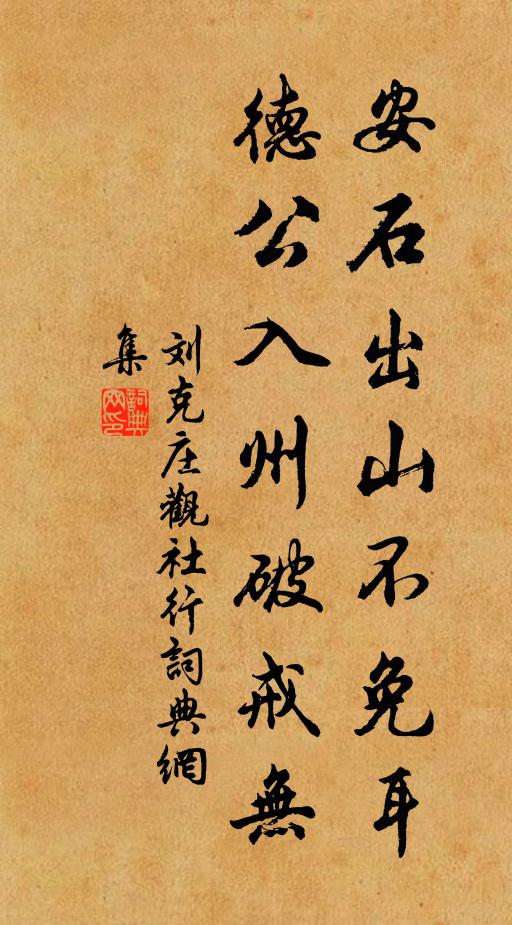 安石出山不免耳
德公入州破戒無
刘克庄觀社行詞典網
集
詞典
网印